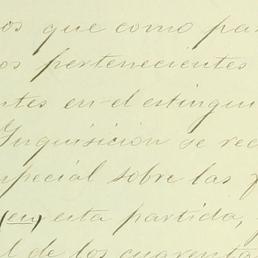 os que como pa
os pertenecientes
ntes en el estingui
Inquisición se rec
special sobre las f
(en) esta partida,
l de los cuarenta